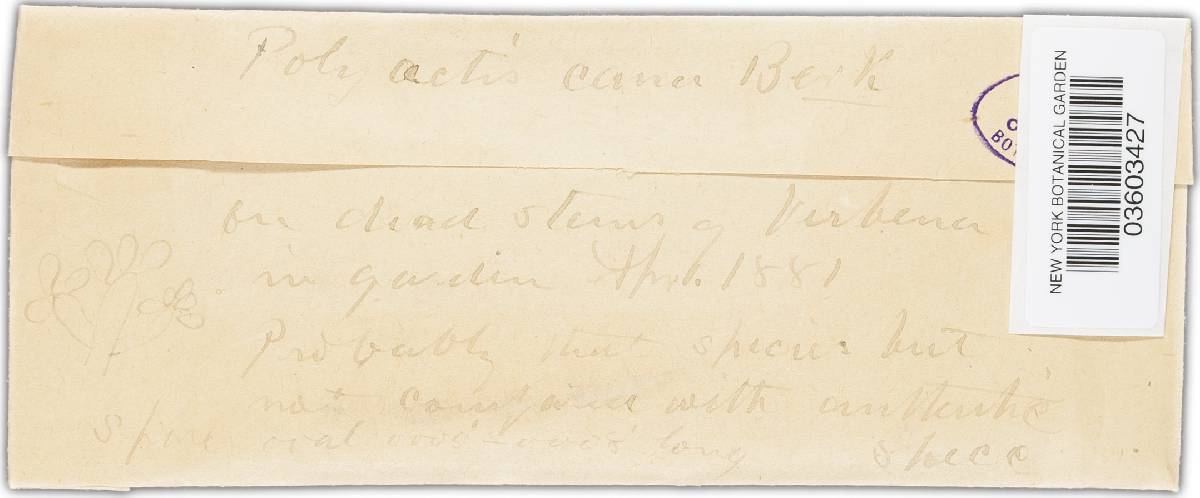 Polyactis cana Berk
on dead stems of Verbena
in garden Apr. 1881
Probably that species but
not compared with authentic
spec
spores oval long
NEW YORK BOTANICAL GARDEN
03603427
BOT